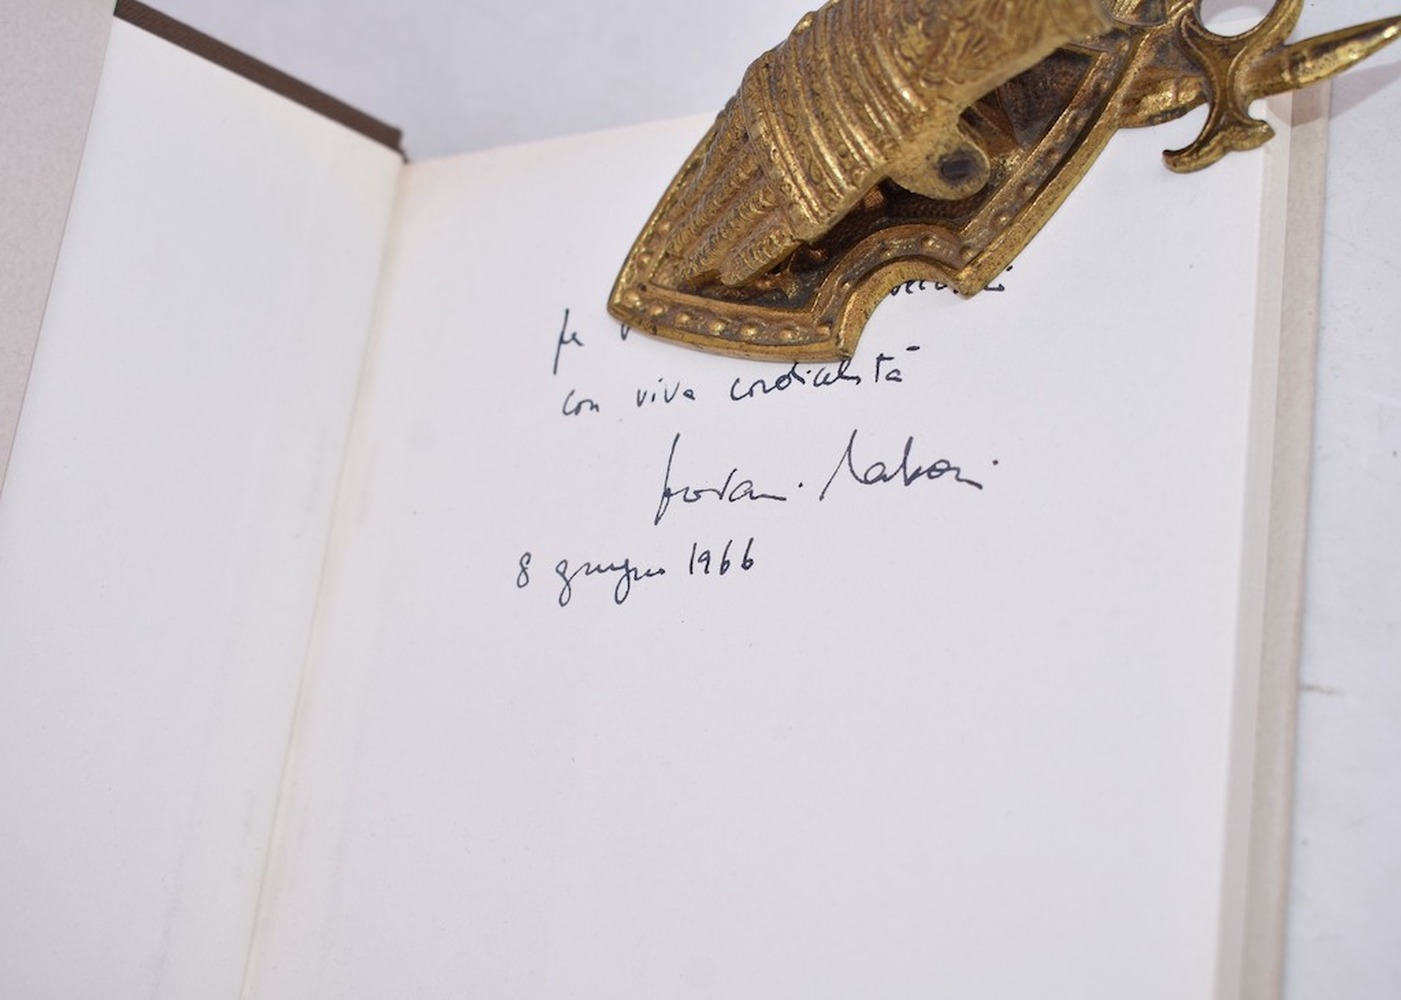 con viva cordialità
Giovanni Raboni
8 giugno 1966